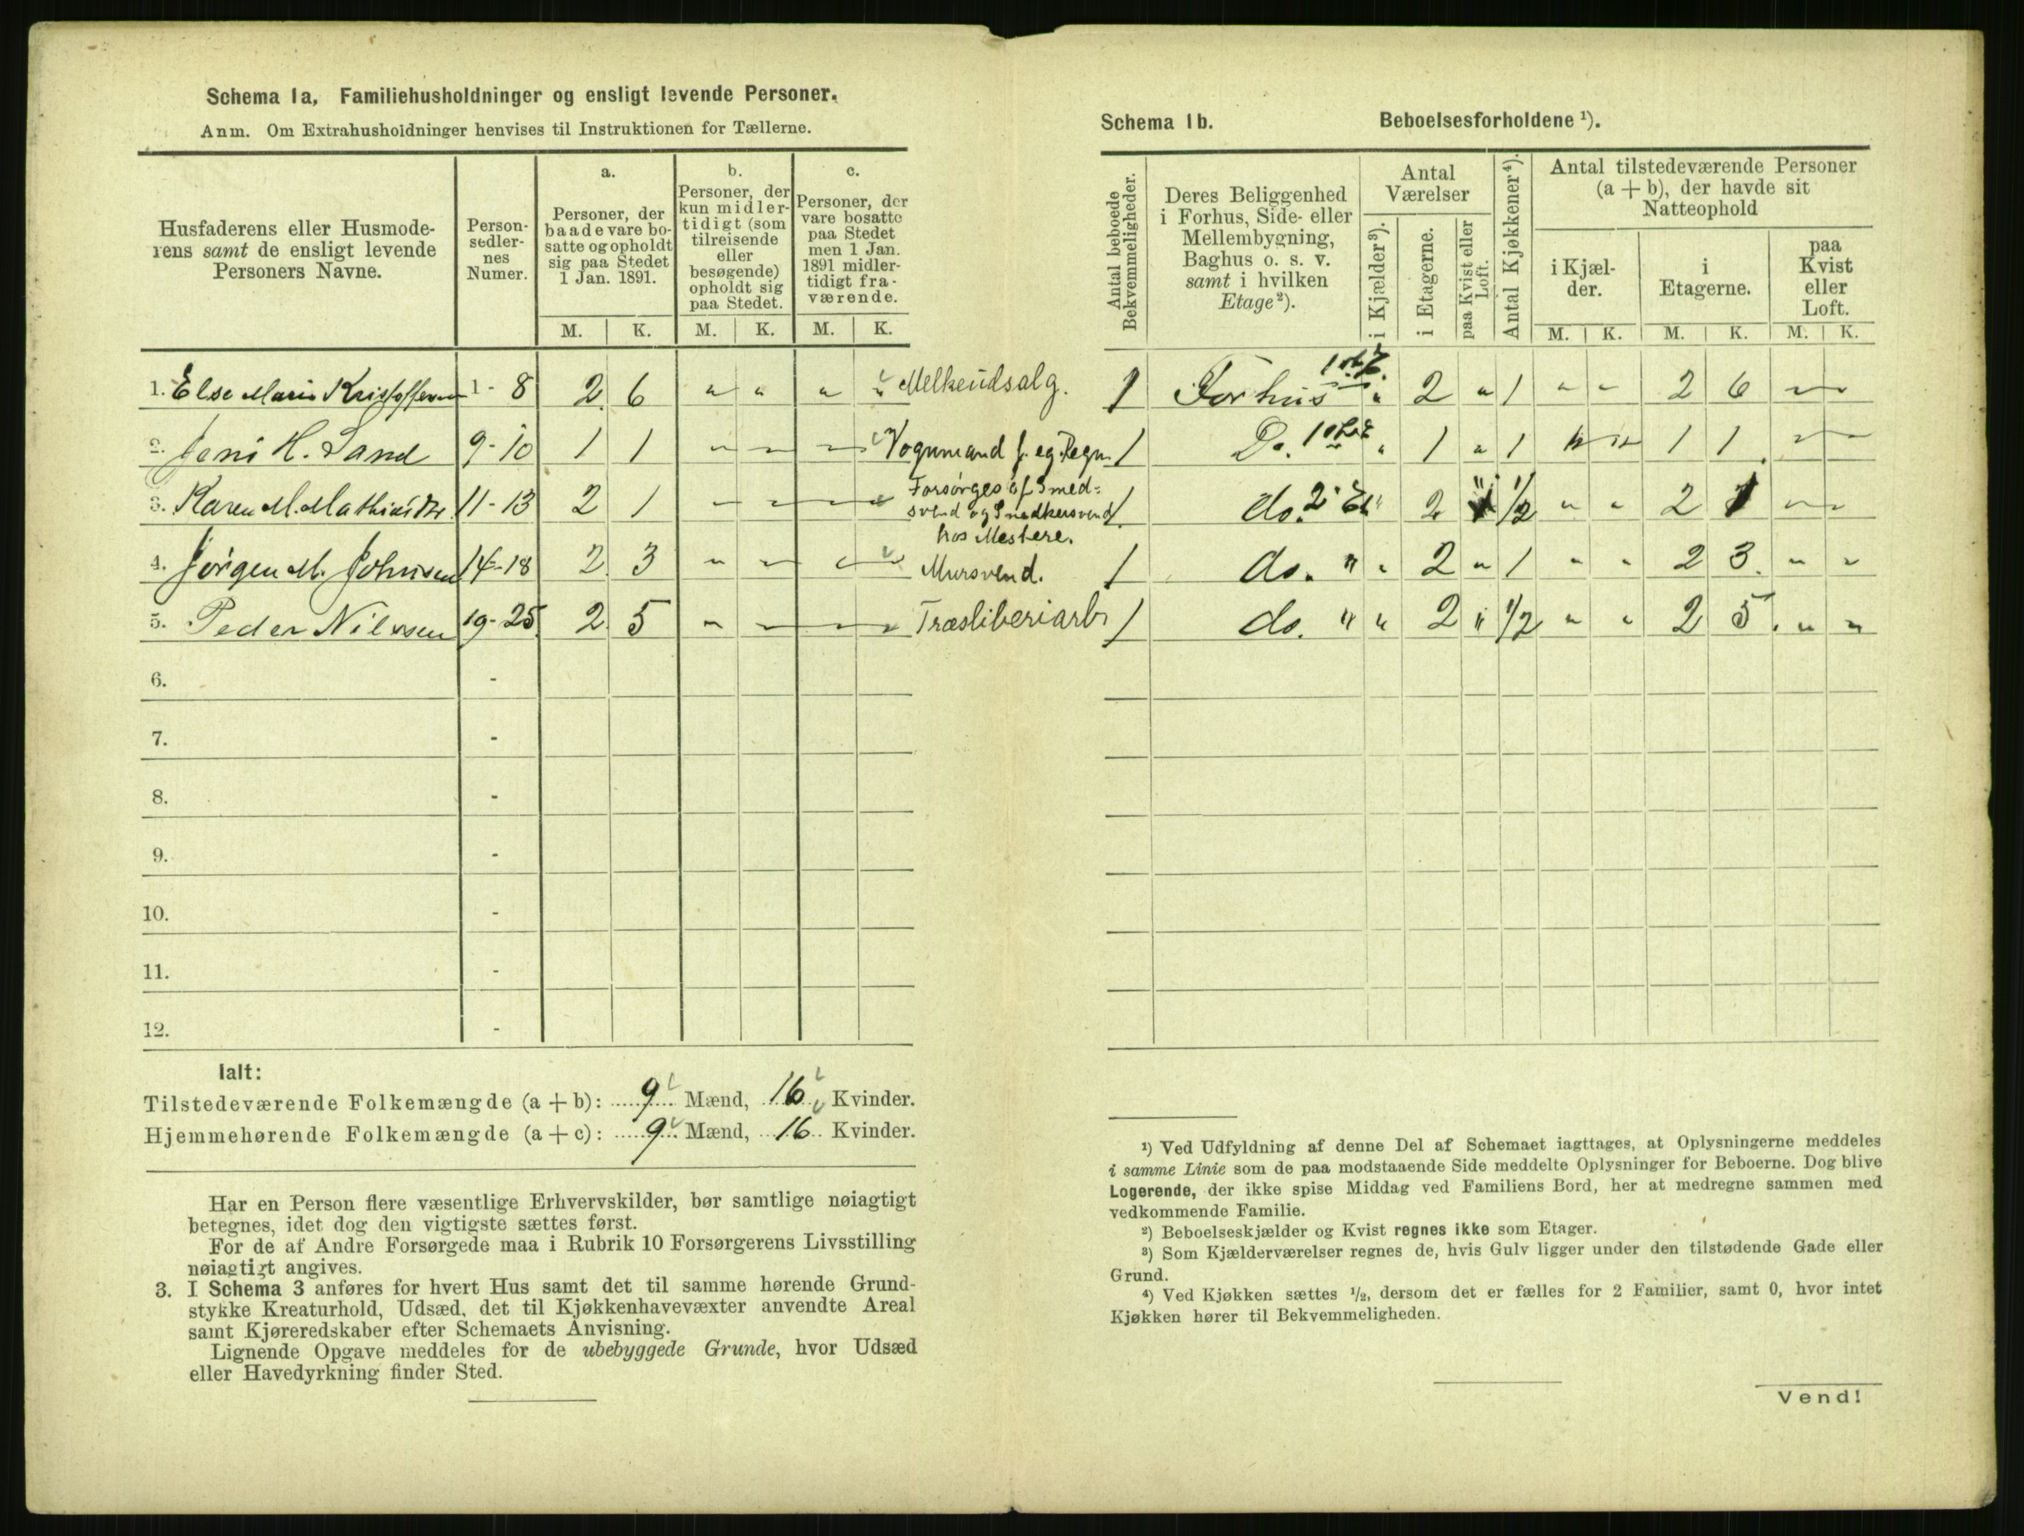 Schema 1a, Familiehusholdninger og ensligt levende Personer.
Anm. Om Extrahusholdninger henvises til Instruktionen for Tællerne.
Husfaderens eller Husmoderens samt de ensligt levende Personers Navne.
Personsedlernes Numer.
a. Personer, der baade vare bosatte og opholdt sig paa Stedet 1 Jan. 1891.
b. Personer, der kun midlertidigt (som tilreisende eller besøgende) opholdt sig paa Stedet.
c. Personer, der vare bosatte paa Stedet men 1 Jan. 1891 midlertidigt fraværende.
M. K. M. K. M. K.
1. Else Marie Kristoffersen 1 - 8 2 6 " " " " Melkeudsalg.
2. Jens H. Sand 9-10 1 1 " " " " Vognmand f. eg. Regn.
3. Karen M. Mathisdtr 11-13 2 1 " " " " Forsørges af Smedsvend og Snedkersvend hos Mestere.
4. Jørgen M. Johnsen 14-18 2 3 " " " " Mursvend.
5. Peder Nilssen 19-25 2 5 " " " " Træsliberiarb
6. -
7. -
8. -
9. -
10. -
11. -
12. -
Ialt:
Tilstedeværende Folkemængde (a + b): 9 Mænd, 16 Kvinder.
Hjemmehørende Folkemængde (a + c): 9 Mænd, 16 Kvinder.
Har en Person flere væsentlige Erhvervskilder, bør samtlige nøiagtigt
betegnes, idet dog den vigtigste sættes først.
For de af Andre Forsørgede maa i Rubrik 10 Forsørgerens Livsstilling
nøiagtigt angives.
3. I Schema 3 anføres for hvert Hus samt det til samme hørende Grund-
stykke Kreaturhold, Udsæd, det til Kjøkkenhavevæxter anvendte Areal
samt Kjøreredskaber efter Schemaets Anvisning.
Lignende Opgave meddeles for de ubebyggede Grunde, hvor Udsæd
eller Havedyrkning finder Sted.
Schema 1b. Beboelsesforholdene ¹).
Antal beboede Bekvemmeligheder.
Deres Beliggenhed i Forhus, Side- eller Mellembygning, Baghus o. s. v. samt i hvilken Etage²).
Antal Værelser
i Kjælder³).
i Etagerne.
paa Kvist eller Loft.
Antal Kjøkkener⁴).
Antal tilstedeværende Personer (a + b), der havde sit Natteophold
i Kjælder.
i Etagerne.
paa Kvist eller Loft.
M. K. M. K. M. K.
1 Forhus " 2 " 1 " " 2 6 " "
1 Do. " 1 " 1 " " 1 1 " "
1 do. 2 Et " 2 " 1/2 " " 2 1 " "
1 do. " " 2 " 1 " " 2 3 " "
1 do. " " 2 " 1/2 " " 2 5 " "
¹) Ved Udfyldning af denne Del af Schemaet iagttages, at Oplysningerne meddeles
i samme Linie som de paa modstaaende Side meddelte Oplysninger for Beboerne. Dog blive
Logerende, der ikke spise Middag ved Familiens Bord, her at medregne sammen med
vedkommende Familie.
²) Beboelseskjælder og Kvist regnes ikke som Etager.
³) Som Kjælderværelser regnes de, hvis Gulv ligger under den tilstødende Gade eller
Grund.
⁴) Ved Kjøkken sættes ½, dersom det er fælles for 2 Familier, samt 0, hvor intet
Kjøkken hører til Bekvemmeligheden.
Vend!